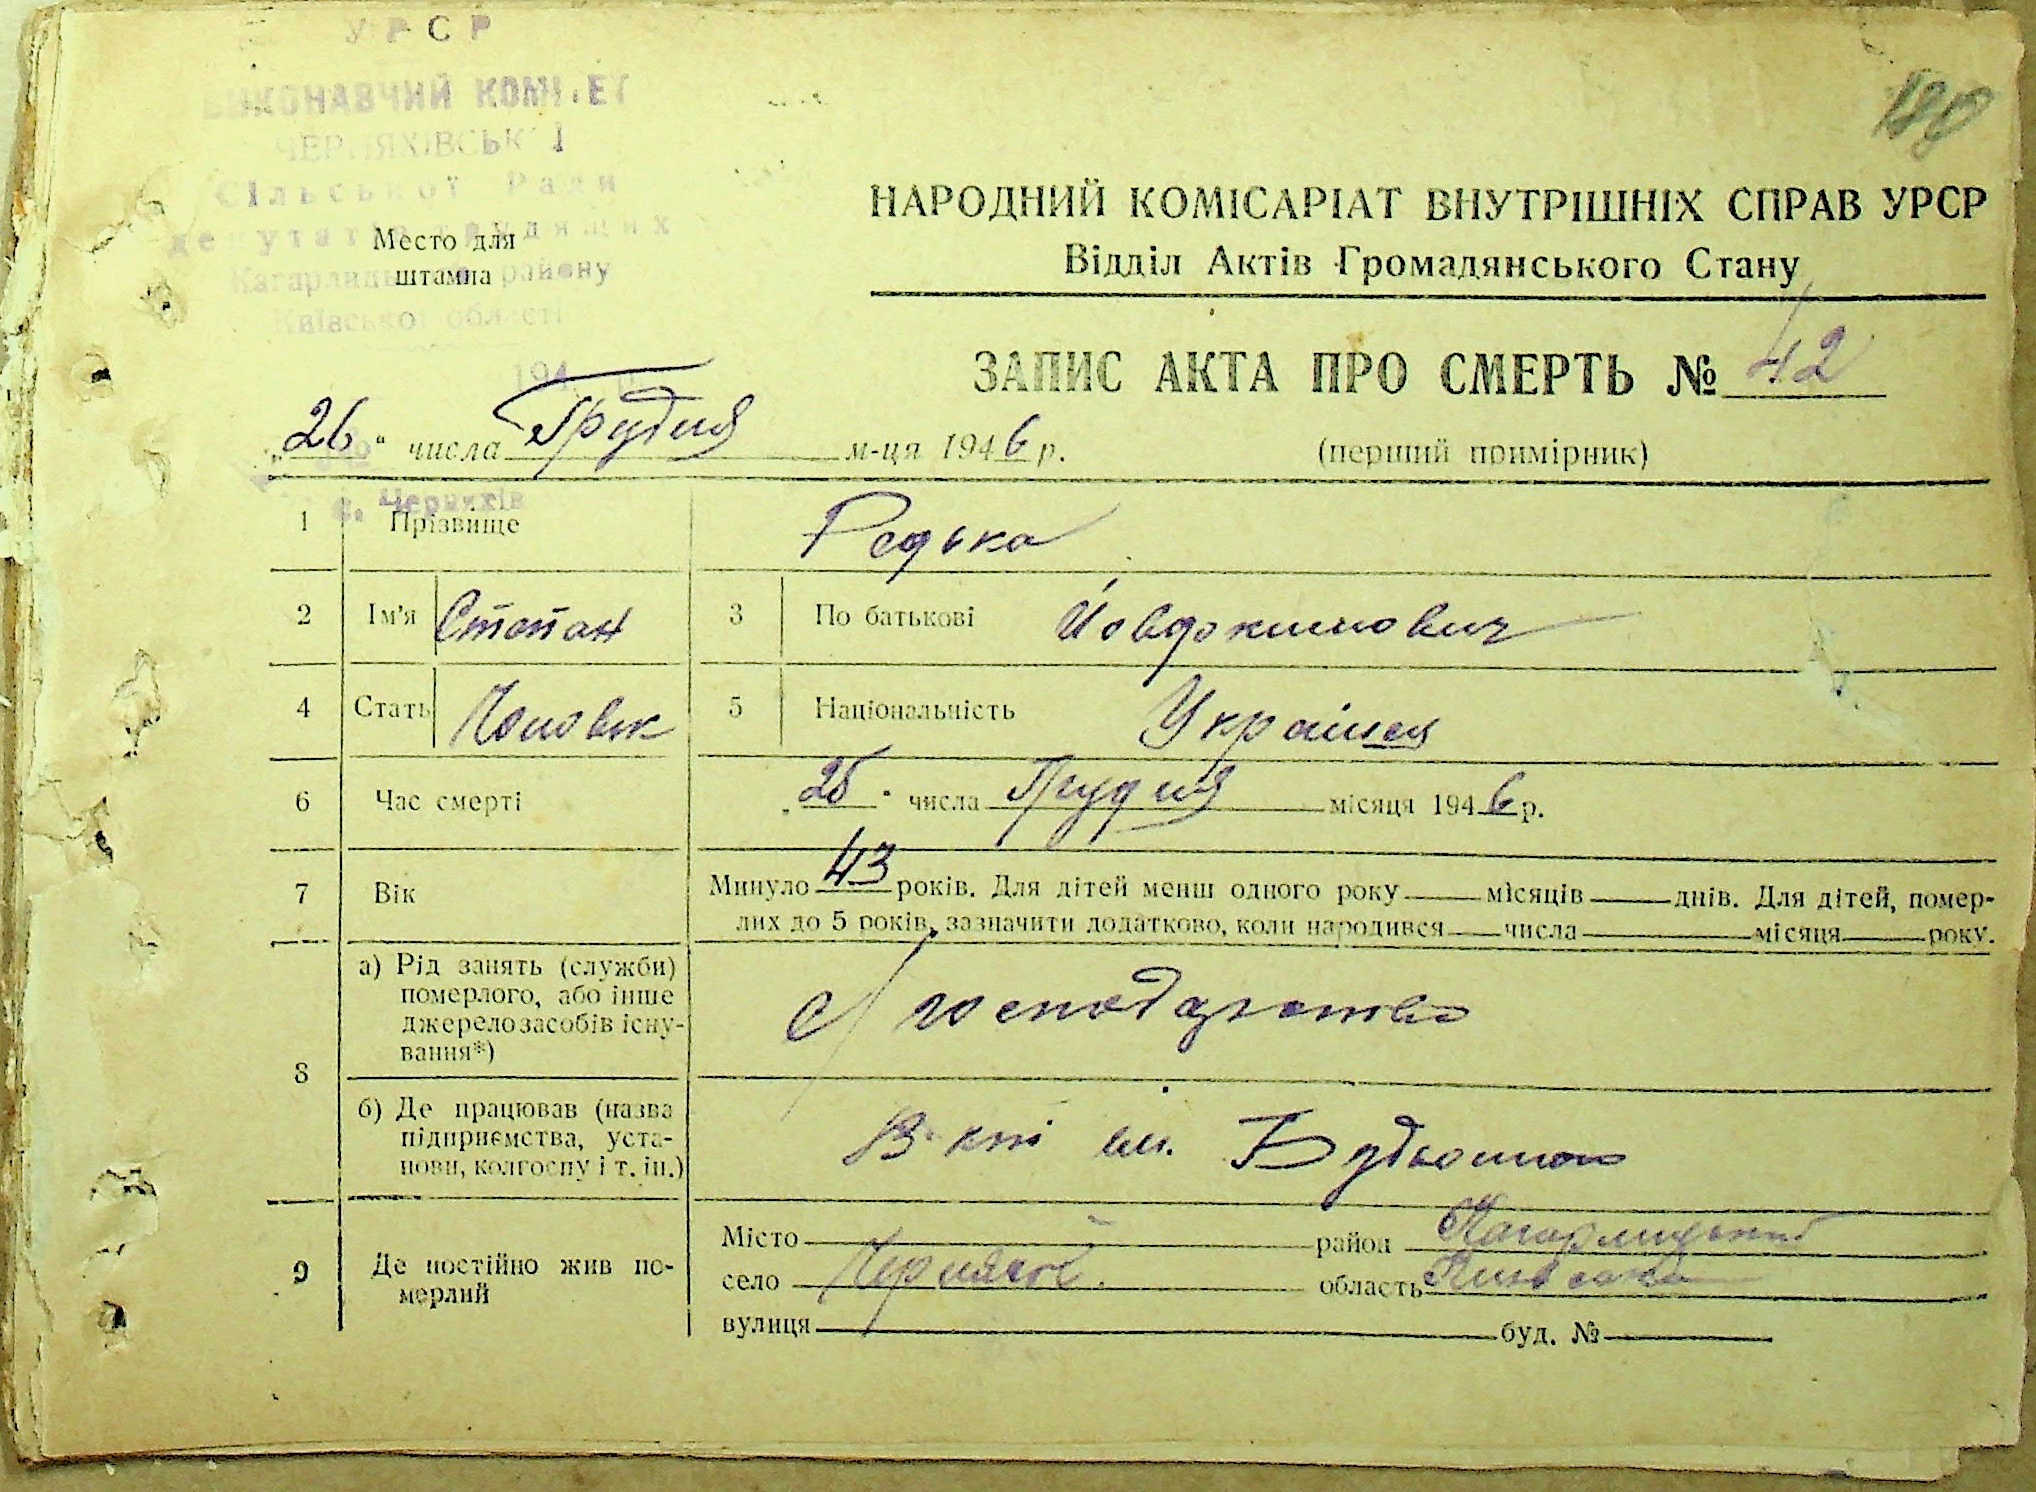 УРСР
ВИКОНАВЧИЙ КОМІТЕТ
ЧЕРНЯХІВСЬКОЇ
Сільської Ради
депутатів трудящих
Кагарлицького району
Київської області
194 р.
с. Черняхів
Место для
штампа
НАРОДНИЙ КОМІСАРІАТ ВНУТРІШНІХ СПРАВ УРСР
Відділ Актів Громадянського Стану
ЗАПИС АКТА ПРО СМЕРТЬ № 42
„26“ числа Грудня м-ця 1946 р.
(перший примірник)
1 Прізвище Редька
2 Ім'я Степан 3 По батькові Йовдокимович
4 Стать Чоловік 5 Національність Українец
6 Час смерті числа Грудня місяця 1946 р.
7 Вік Минуло 43 років. Для дітей менш одного року місяців днів. Для дітей, помер-
лих до 5 років, зазначити додатково, коли народився числа місяця року.
8 а) Рід занять (служби)
померлого, або інше
джерело засобів існу-
вання*)
С/господарство
б) Де працював (назва
підприємства, уста-
нови, колгоспу і т. ін.)
В к-пі ім. Будьонного
9 Де постійно жив по-
мерлий
Місто район Кагарлицький
село Черняхів область Київська
вулиця буд. №